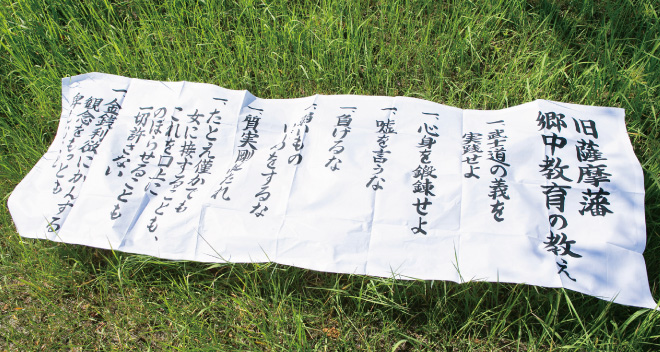 旧薩摩藩
郷中教育の教え
一、武士道の義を
実践せよ
一、心身を鍛錬せよ
一、嘘を言うな
一、負けるな
一、いもの
をするな
一、質実剛たれ
一、たとえ僅かでも
女に接することも、
これを口上に
のぼらせることも
一切許さない
一、金銭利欲にかんする
観念をもっとも
卑